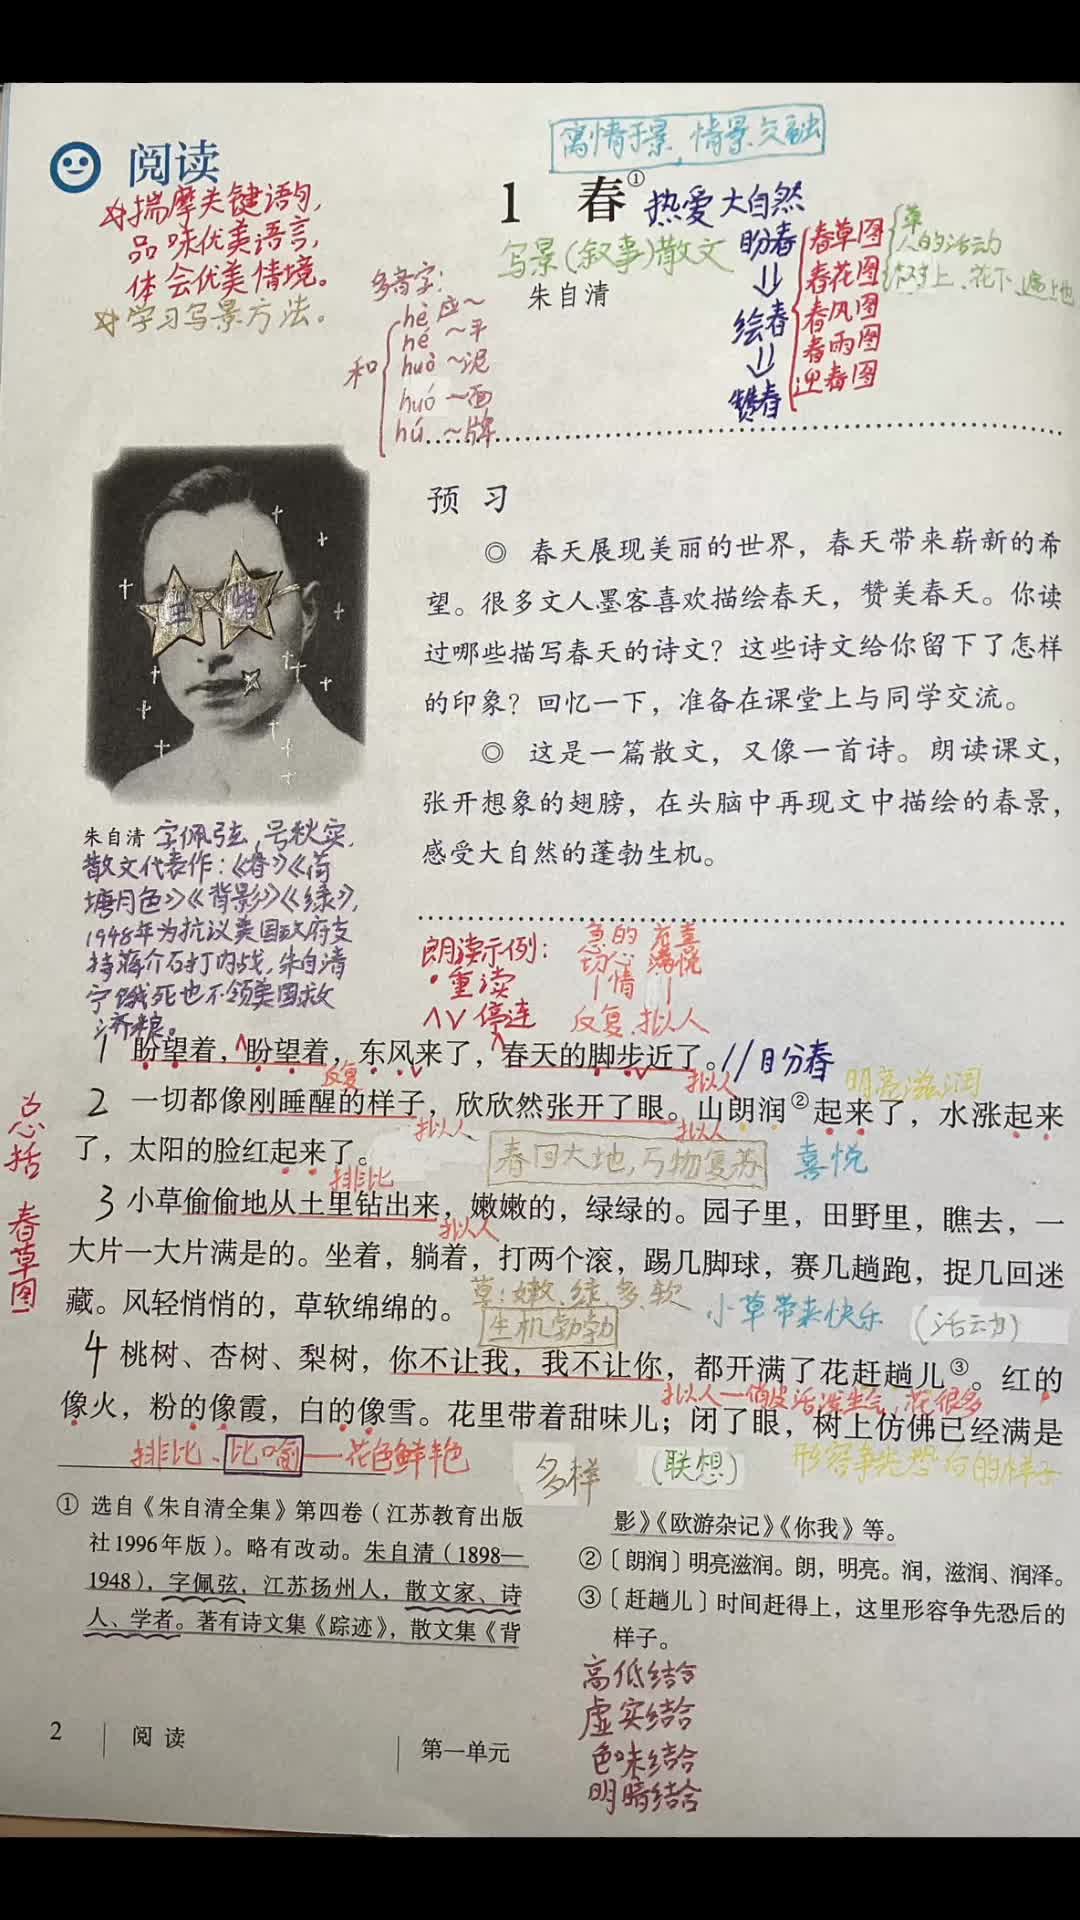 寓情于景,情景交融
阅读
1 春① 热爱大自然
揣摩关键语句,
品味优美语言,
体会优美情境。
学习写景方法。
写景(叙事)散文
朱自清
多音字:
和
hè 应~
hé ~平
huò ~泥
huó ~面
hú ~牌
盼春
绘春
赞春
春草图
春花图
春风图
春雨图
迎春图
草
人的活动
树上、花下、遍地
预习
◎ 春天展现美丽的世界，春天带来崭新的希
望。很多文人墨客喜欢描绘春天，赞美春天。你读
过哪些描写春天的诗文？这些诗文给你留下了怎样
的印象？回忆一下，准备在课堂上与同学交流。
◎ 这是一篇散文，又像一首诗。朗读课文，
张开想象的翅膀，在头脑中再现文中描绘的春景，
感受大自然的蓬勃生机。
朱自清 字佩弦,号秋实,
散文代表作:《春》《荷
塘月色》《背影》《绿》,
1948年为抗议美国政府支
持蒋介石打内战,朱自清
宁饿死也不领美国救
济粮。
朗读示例:
·重读
∧∨停连
急切的心情
充满喜悦
反复、拟人
1 盼望着，盼望着，东风来了，春天的脚步近了。//盼春
反复
拟人
明亮滋润
2 一切都像刚睡醒的样子，欣欣然张开了眼。山朗润②起来了，水涨起来
拟人
拟人
了，太阳的脸红起来了。
春回大地,万物复苏
喜悦
排比
总括
春草图
3 小草偷偷地从土里钻出来，嫩嫩的，绿绿的。园子里，田野里，瞧去，一
拟人
大片一大片满是的。坐着，躺着，打两个滚，踢几脚球，赛几趟跑，捉几回迷
藏。风轻悄悄的，草软绵绵的。
草:嫩、绿、多、软
生机勃勃
小草带来快乐
(活动)
4 桃树、杏树、梨树，你不让我，我不让你，都开满了花赶趟儿③。红的
拟人—俏皮活泼生气,花很多
像火，粉的像霞，白的像雪。花里带着甜味儿；闭了眼，树上仿佛已经满是
排比、比喻——花色鲜艳
多样
(联想)
形容争先恐后的样子
① 选自《朱自清全集》第四卷（江苏教育出版
社1996年版）。略有改动。朱自清（1898—
1948），字佩弦，江苏扬州人，散文家、诗
人、学者。著有诗文集《踪迹》，散文集《背
影》《欧游杂记》《你我》等。
②〔朗润〕明亮滋润。朗，明亮。润，滋润、润泽。
③〔赶趟儿〕时间赶得上，这里形容争先恐后的
样子。
高低结合
虚实结合
色味结合
明暗结合
2
阅读
第一单元